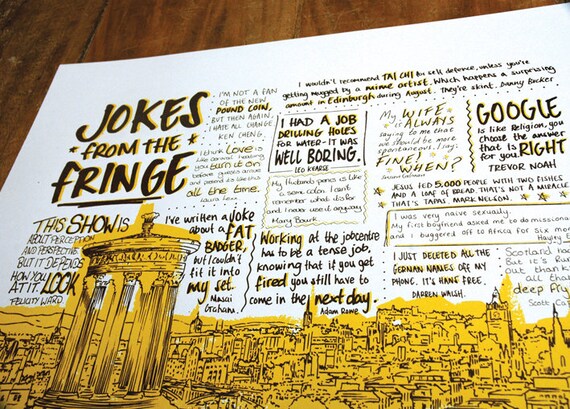 JOKES
FROM THE
FRINGE
I'M NOT A FAN
OF THE NEW
POUND COIN,
BUT THEN AGAIN,
I HATE ALL CHANGE
KEN CHENG.
I think Love is
like central heating.
You turn it on
before guests arrive
and pretend it's like this
all the time.
Laura Lexx
I wouldn't recommend TAI CHI for self defence, unless you're
getting mugged by a mime artist. Which happens a surprising
amount in Edinburgh during August. They're skint. Danny Backer
I HAD A JOB
DRILLING HOLES
FOR WATER-IT WAS
WELL BORING.
LEO KEARSE
My WIFE'S
ALWAYS
saying to me that
we should be more
spontaneous. I say:
FINE!
WHEN?
GOOGLE
is like Religion, you
choose the answer
that is
for you RIGHT
TREVOR NOAH
My husband's penis is like
a semi colon. I can't
remember what it's for
and I never use it anyway
Mary Bourk
JESUS FED 5,000 PEOPLE WITH TWO FISHES
AND A LOAF OF BREAD. THAT'S NOT A MIRACLE
THAT'S TAPAS. MARK NELSON.
THIS SHOW IS
ABOUT PERCEPTION
AND PERSPECTIVE.
BUT IT DEPENDS
HOW YOU LOOK
AT IT.
FELICITY WARD.
I've written a JOKE
about a FAT
BADGER,
but I couldn't
fit it into
my set.
Masai
Graham.
Working at the jobcentre
has to be a tense job,
knowing that if you get
fired you still have to
come in the next day.
Adam Rowe
I was very naive sexually.
My first boyfriend asked me to do missiona
and I buggered off to Africa for six mon
Hayley
I JUST DELETED ALL THE
GERMAN NAMES OFF MY
PHONE. IT'S HANS FREE.
DARREN WALSH.
Scotland ha
But it's
out than
all
deep fra
Scott Ca